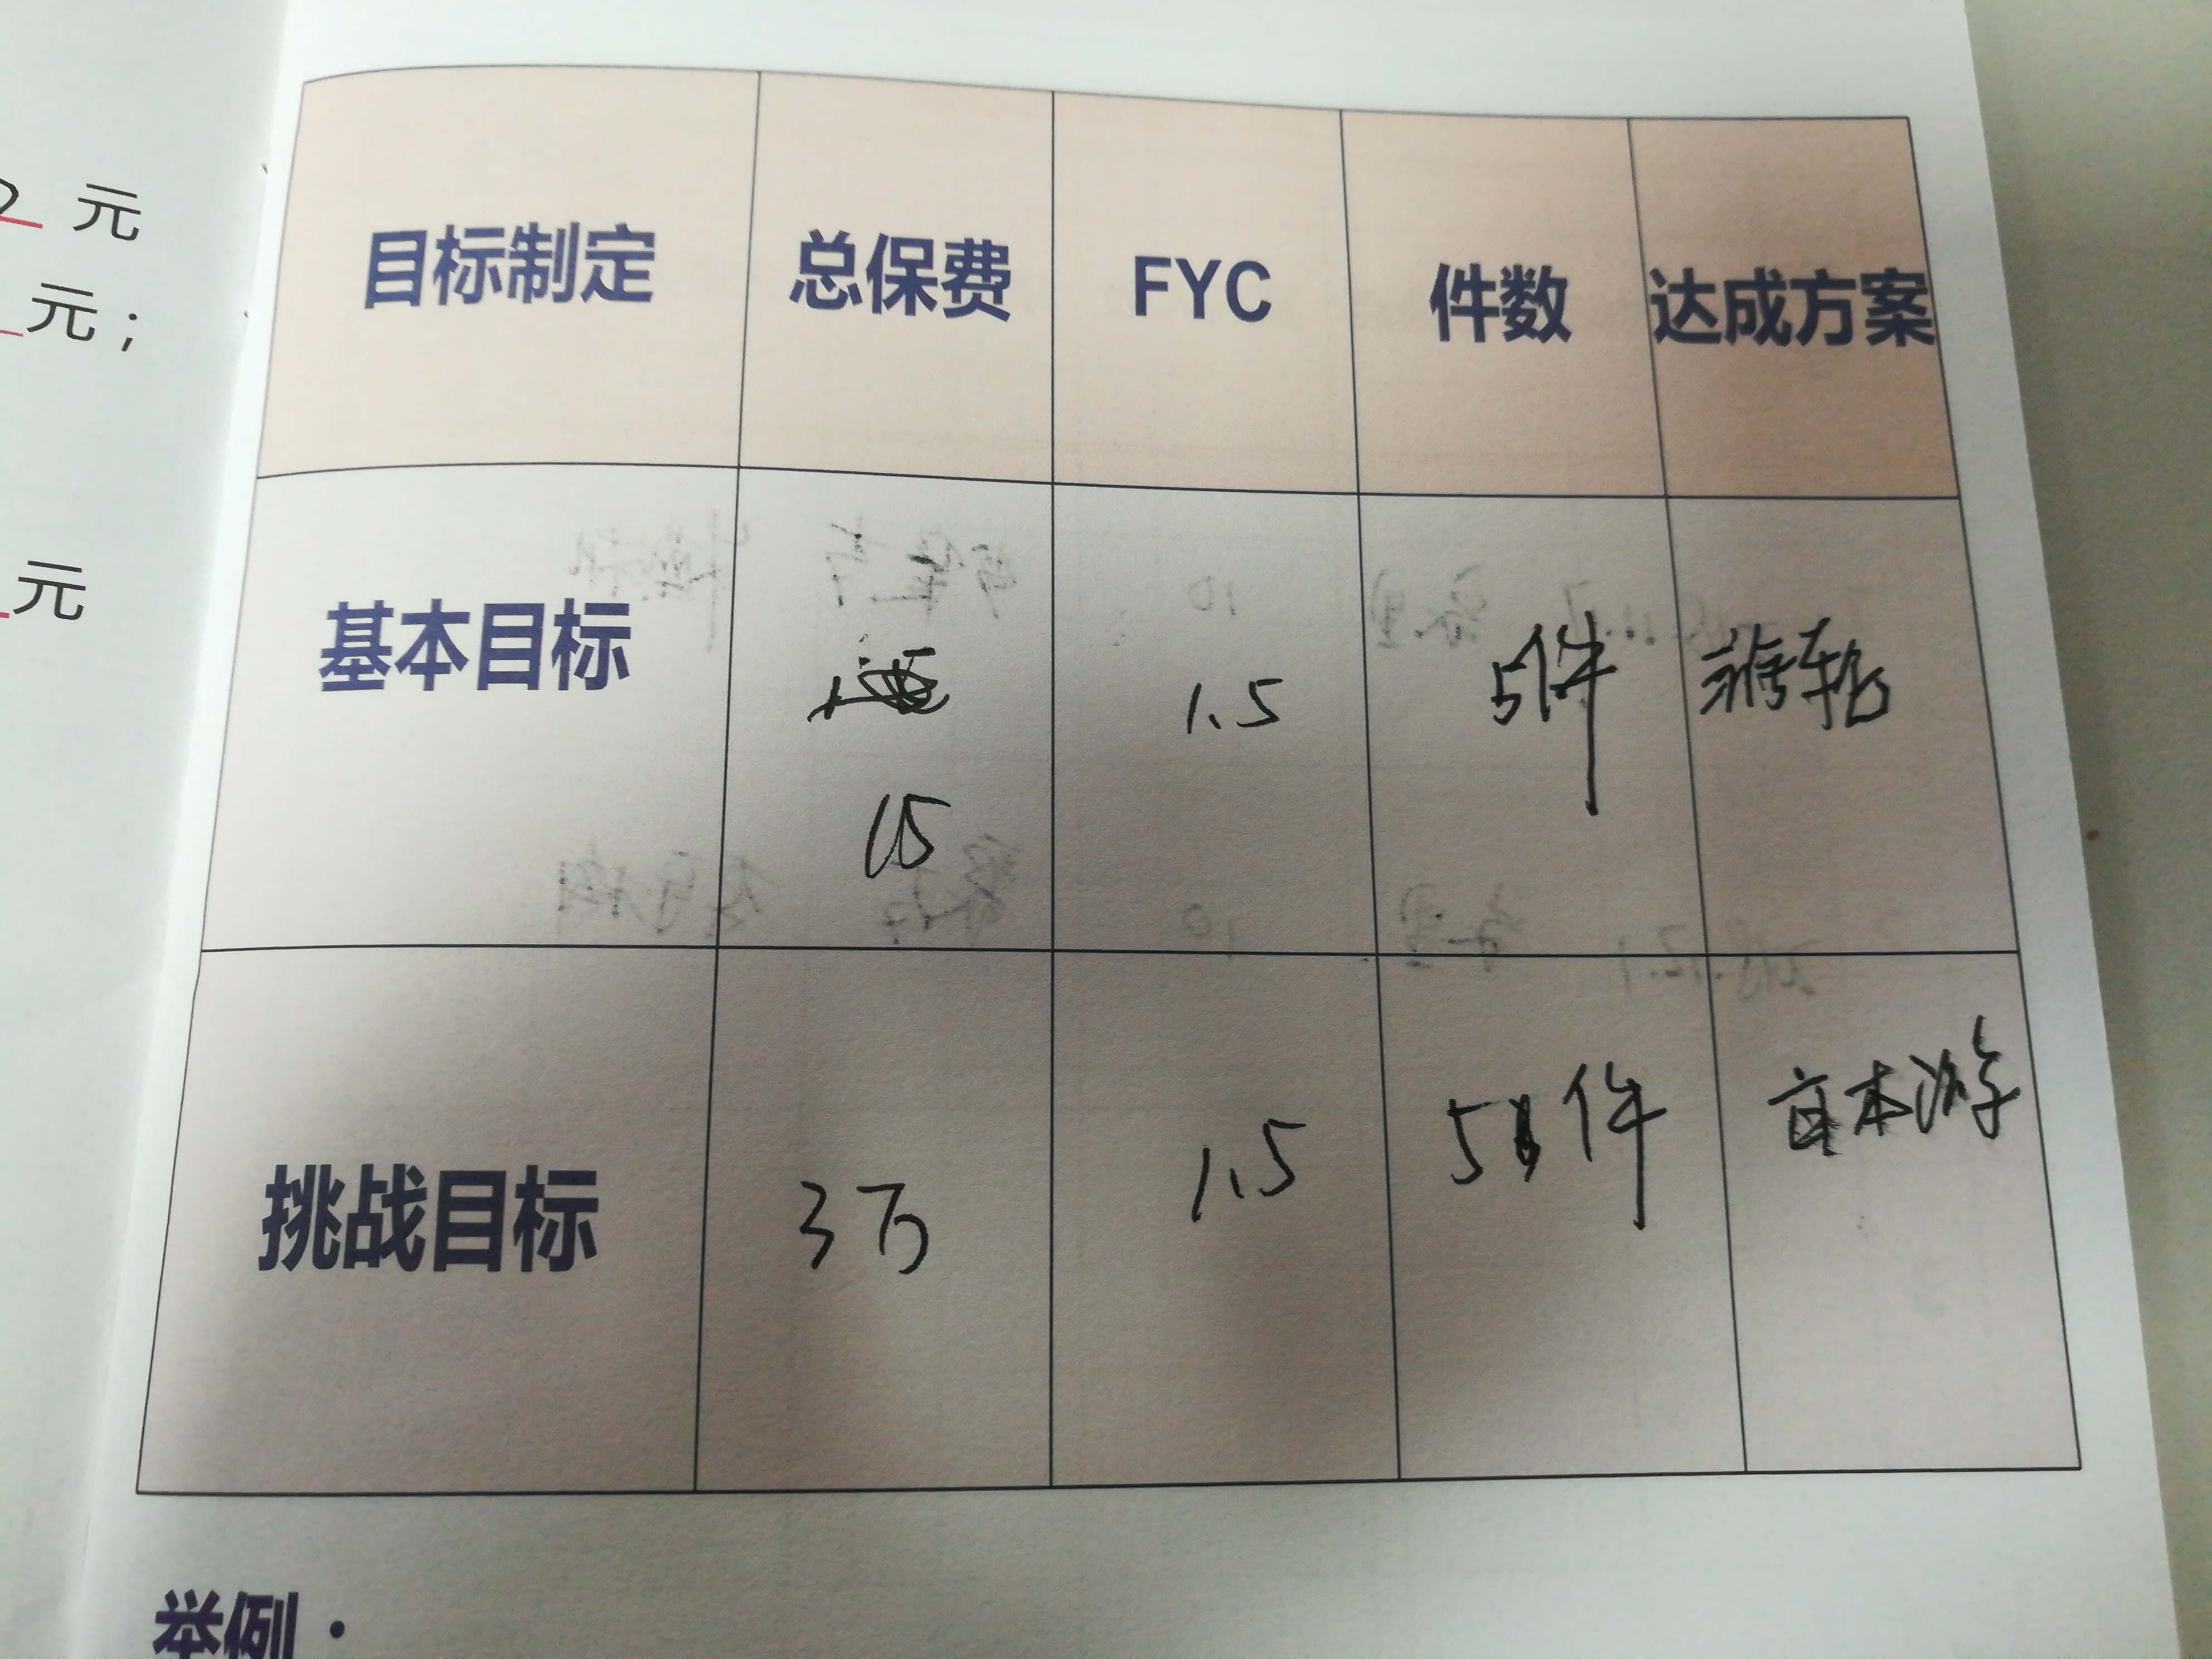 2 元
元；
元
目标制定 总保费 FYC 件数 达成方案
基本目标 15 1.5 5件
挑战目标 3万 1.5 5件 本游
举例：